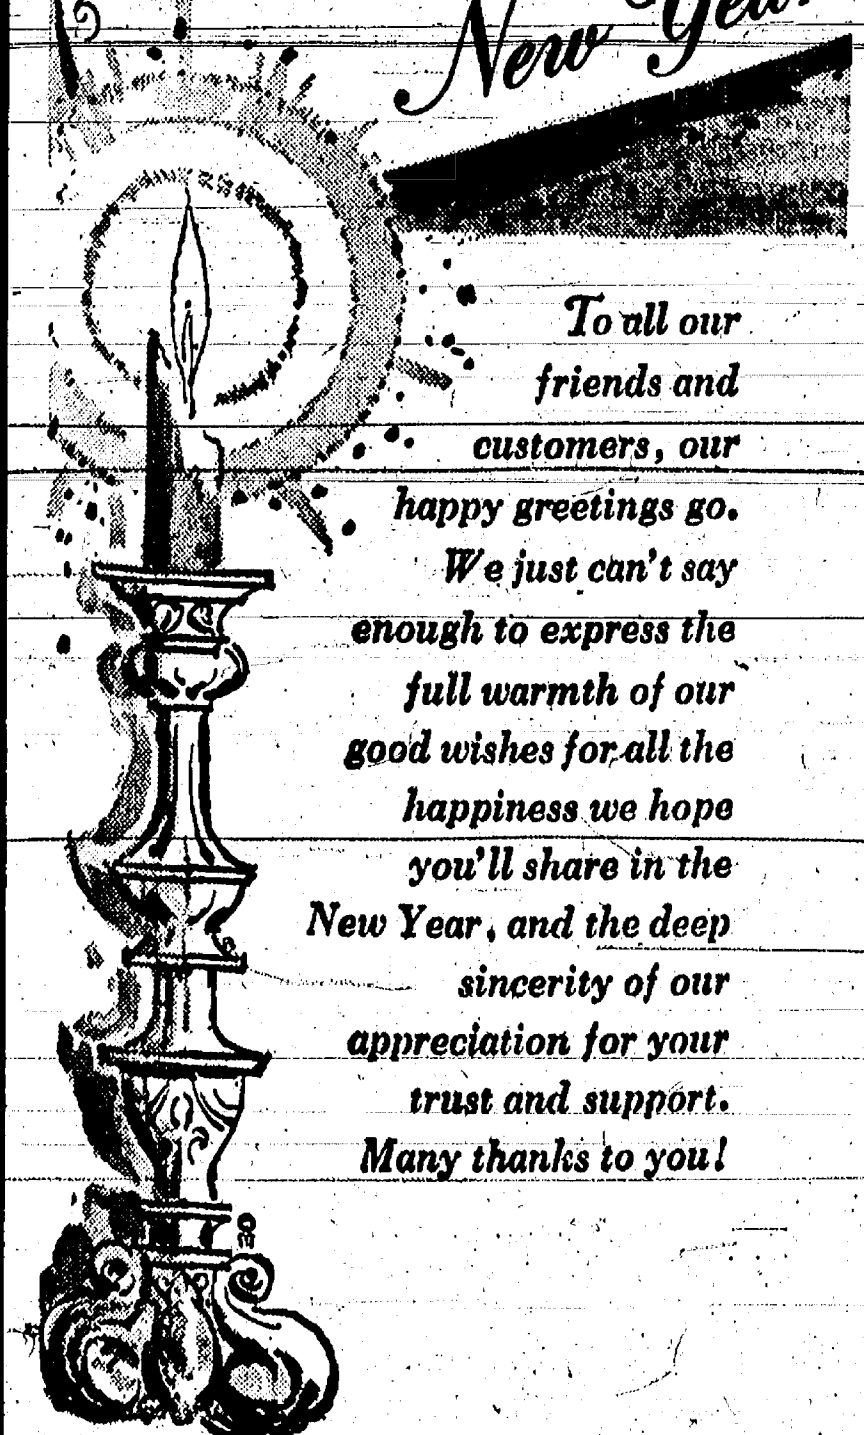 New Year
To all our
friends and
customers, our
happy greetings go.
We just can't say
enough to express the
full warmth of our
good wishes for all the
happiness we hope
you'll share in the
New Year, and the deep
sincerity of our
appreciation for your
trust and support.
Many thanks to you!